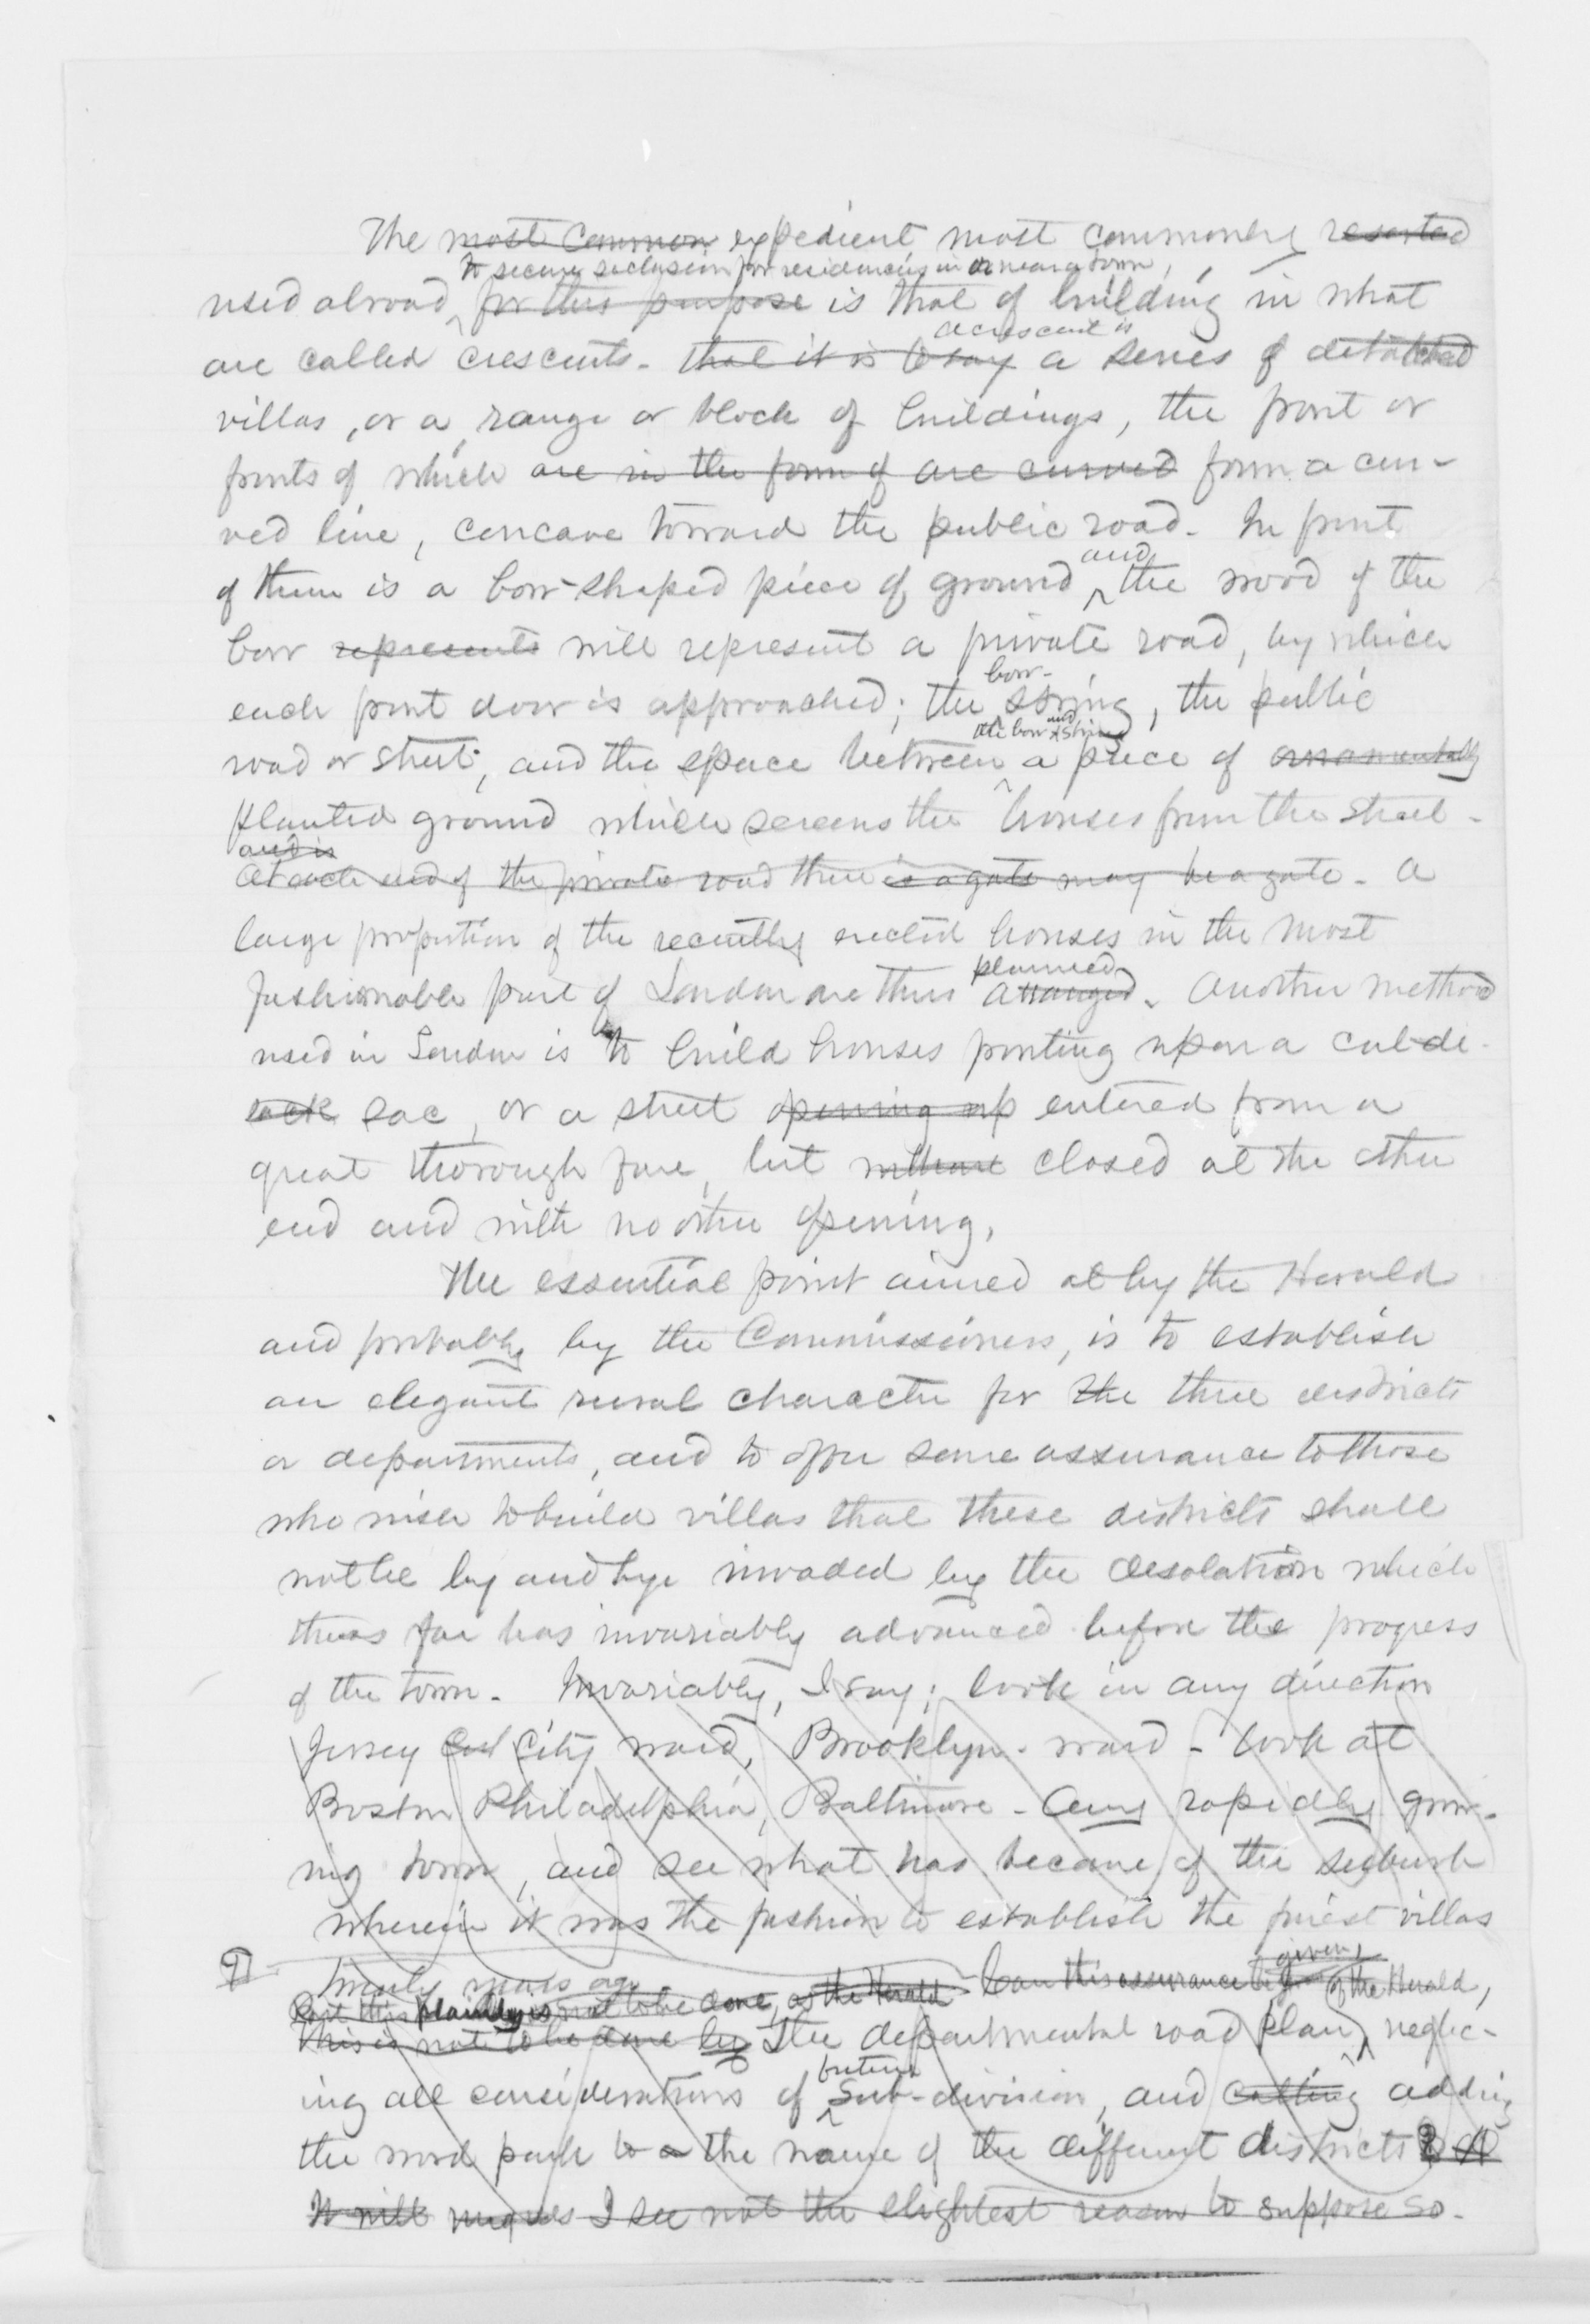 The most common expedient most commonly resorted
to secure seclusion for residences in or near a town,
used abroad for this purpose is that of building in what
a crescent is
are called crescents. that it is to say a series of detatched
villas, or a range or block of buildings, the front or
fronts of which are in the form of are curved form a cur-
ved line, concave toward the public road. In front
and
of them is a bow-shaped piece of ground the wood of the
bow represents will represent a private road, by which
bow-
each front door is approached; the string, the public
the bow and string
road or street; and the space between a piece of ornamentally
planted ground which screens the houses from the street.
and is
At each end of the private road there is a gate may be a gate. A
large proportion of the recently erected houses in the most
planned
fashionable part of London are thus arranged. Another method
used in London is to build houses fronting upon a cul-de-
sac, or a street opening up entered from a
great thorough fare, but without closed at the other
end and with no other opening.
The essential point aimed at by the Herald
and probably by the Commissioners, is to establish
an elegant rural character for the three districts
or departments, and to offer some assurance to those
who wish to build villas that these districts shall
not be by and bye invaded by the desolation which
thus far has invariably advanced before the progress
of the town. Invariably, I say; look in any direction
Jersey City ward, Brooklyn-ward - look at
Boston Philadelphia, Baltimore - Any rapidly grow-
ing town, and see what has become of the suburb
wherein it was the fashion to establish the finest villas
given,
twenty years ago Can this assurance be of the Herald,
But this plainly is not to be done, as the Herald
This is not to be done by The departmental road plan, neglec-
future
ing all considerations of sub-division, and calling adding
the word park to a the name of the different districts?
It will I see not the slightest reason to suppose so.